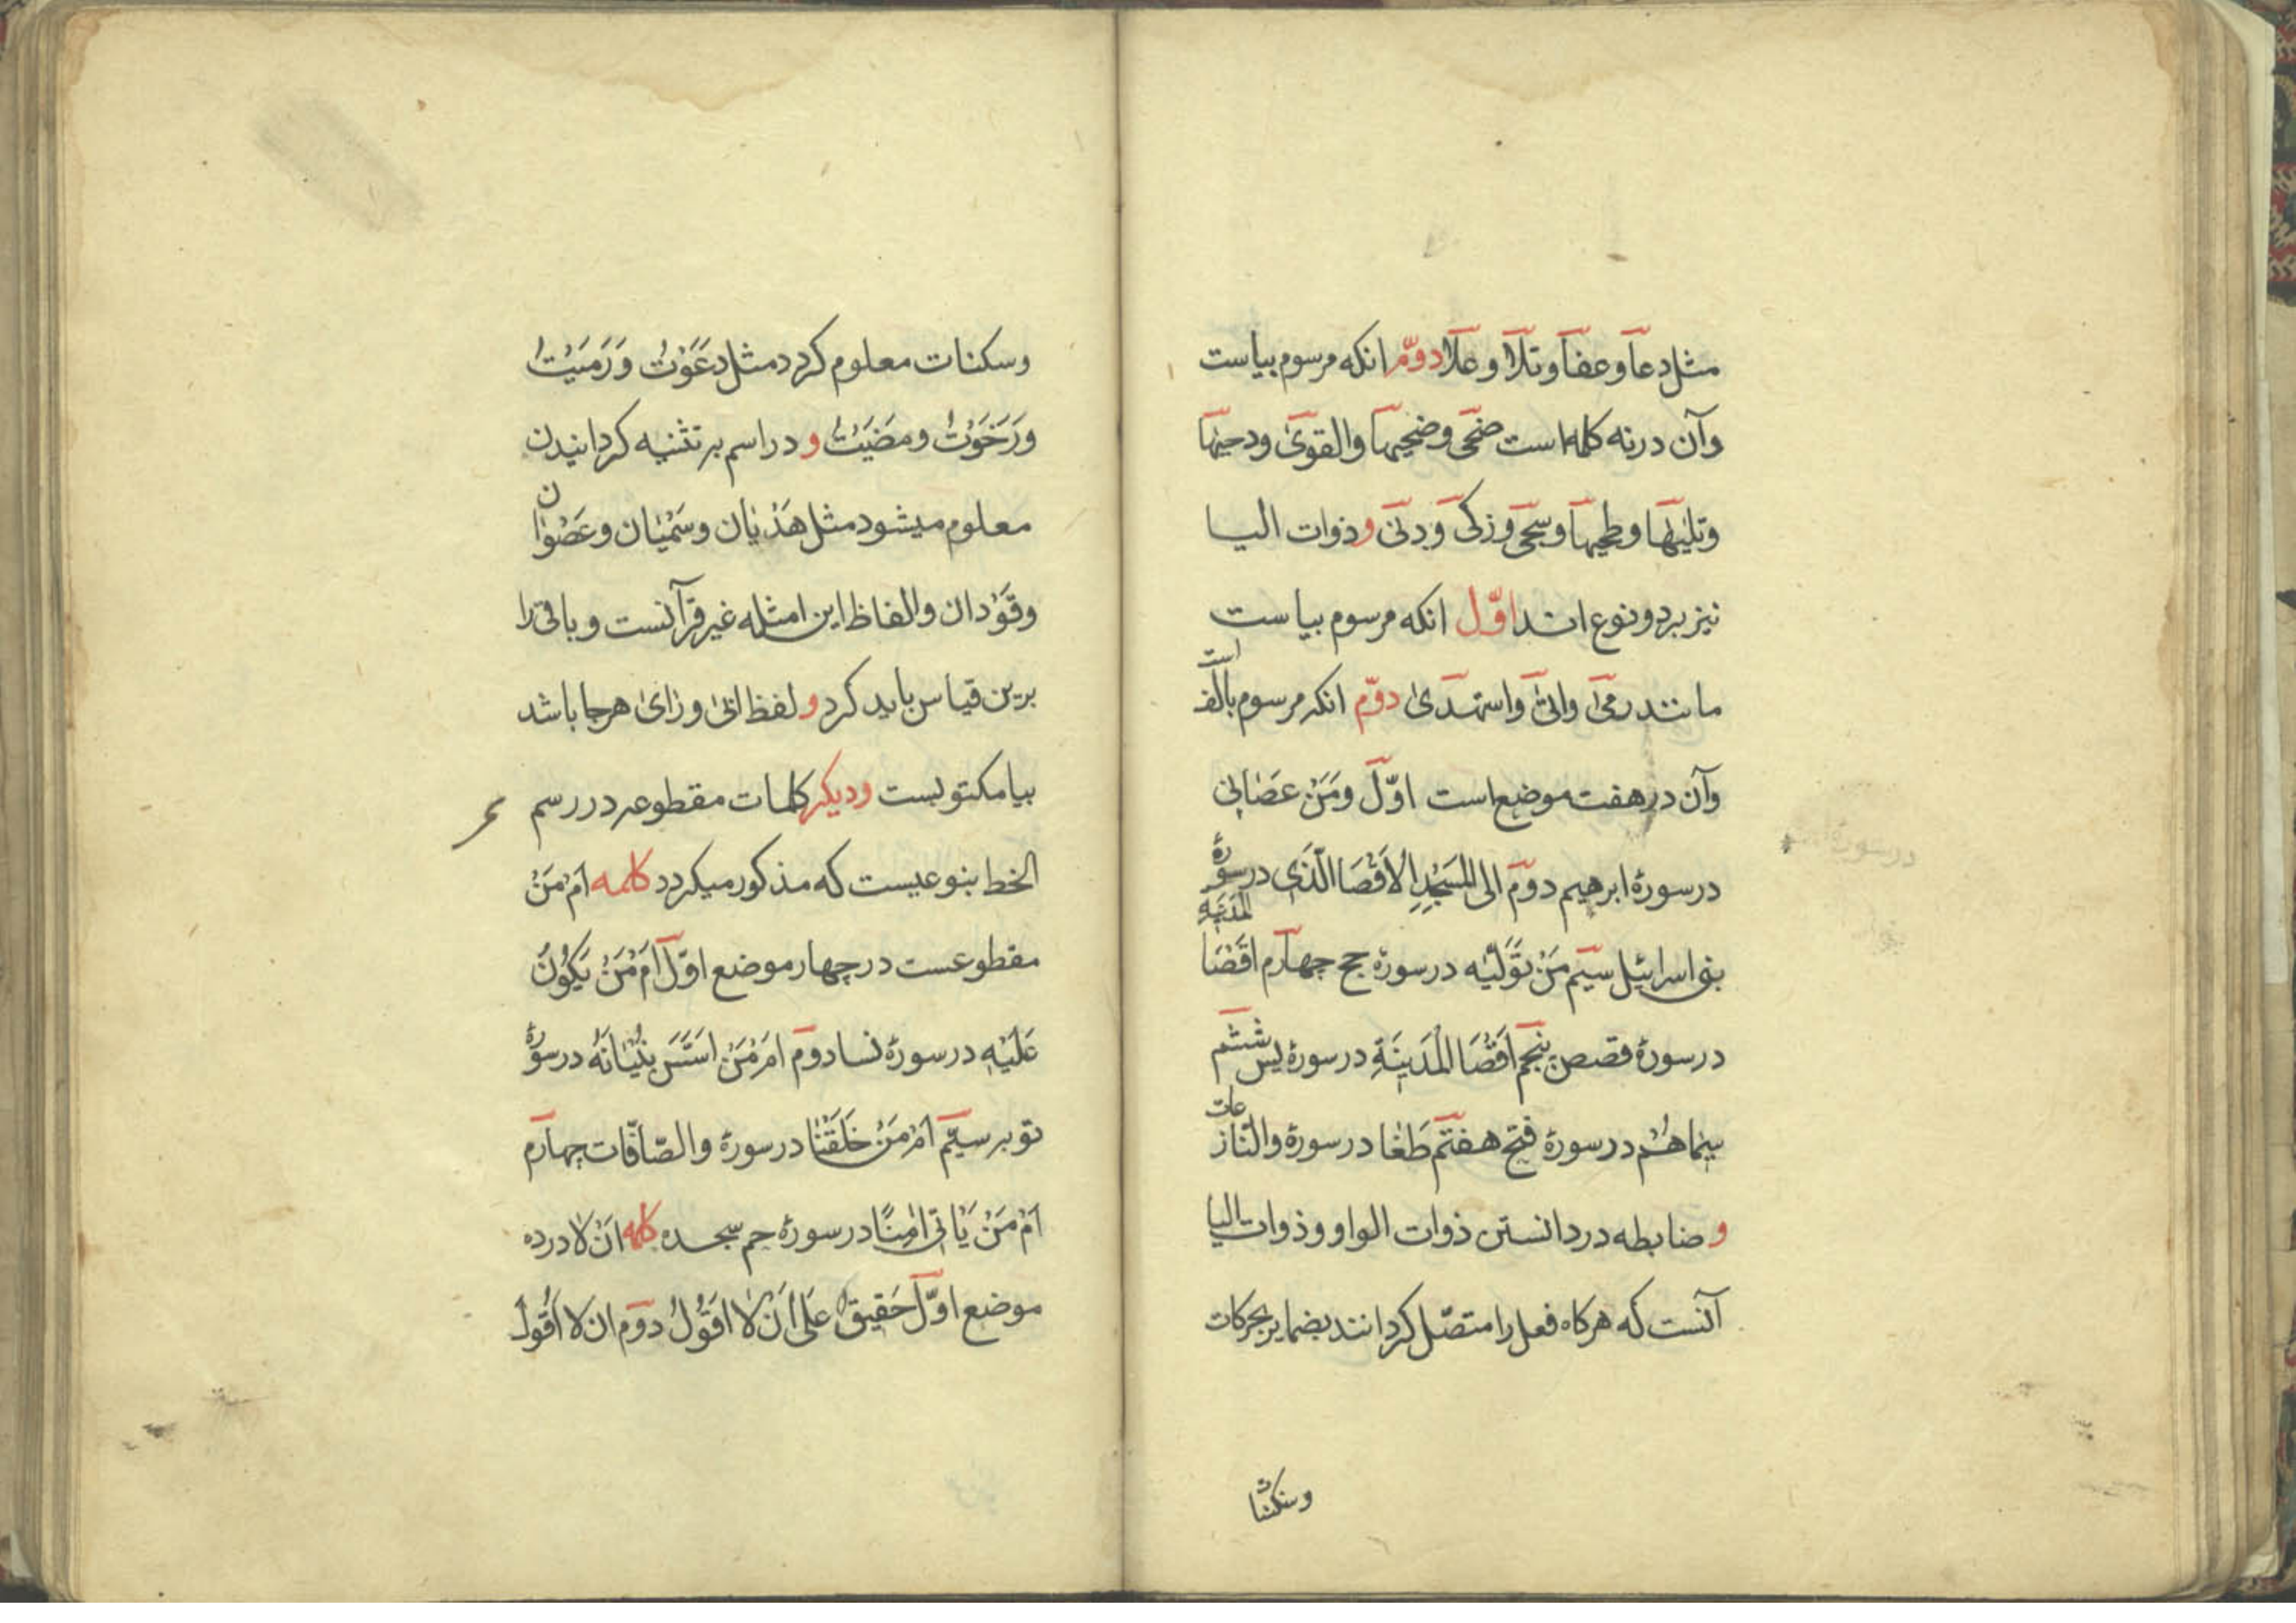 مثل دعا و عفا و تلا و علا دوّم انکه مرسوم بیاست
وآن درنه کلمه است ضحی وضحیها والقوی ودحیها
وتلیها وطحیها وسجی وزکی ودنی و ذوات الیا
نیز بردو نوع اند اوّل انکه مرسوم بیا ست
مانند رمی واتی واستهدی دوّم انکه مرسوم بالف است
وآن درهفت موضع است اوّل ومَنْ عَصَانِی
درسورهٔ ابرهیم دوّم الی المَسْجِدِ الاَقْصَا الَّذی درسورهٔ
بنی اسرائیل سیّم مَنْ تَوَلّیٰه درسورهٔ حج چهارم اَقْصَا المَدینَةِ
درسورهٔ قصص پنجم اَقْصَا الْمَدینَةِ درسورهٔ یس ششم
سیماهُم درسورهٔ فتح هفتم طَغَا درسورهٔ والنّازعات
و ضابطه دردانستن ذوات الواو وذوات الیا
آنست که هرکاه فعل را متصّل کردانند بضمایر بحرکات
وسکنات
وسکنات معلوم کردد مثل دَعَوْتُ وَرَمَیْتُ
ورَخَوْتُ ومضَیْتُ و دراسم بر تثنیه کردانیدن
معلوم میشود مثل هَذیان وسَمْیان وعَصْوان
وقَوْدان والفاظ این امثله غیر قرآنست وباقی را
برین قیاس باید کرد و لفظ اتی وزای هرجا باشد
بیا مکتوبست ودیکر کلمات مقطوعه دررسم
الخط بنوعیست که مذکور میکردد کلمه اَمْ مَنْ
مقطوعست درچهار موضع اوّل اَمْ مَنْ یَکُونُ
عَلَیْهِ درسورهٔ نسا دوّم امْ مَنْ اسَّسَ بُنْیَانَهُ درسورهٔ
توبه سیّم اَمْ مَنْ خَلَقْنَا درسورهٔ والصّافّات چهارم
اَمْ مَنْ یَاْتی اٰمِنًا درسورهٔ حم سجده کلمه اَنْ لا درده
موضع اوّل حَقیقٌ عَلٰی اَنْ لا اَقُولَ دوّم ان لا اَقُولَ